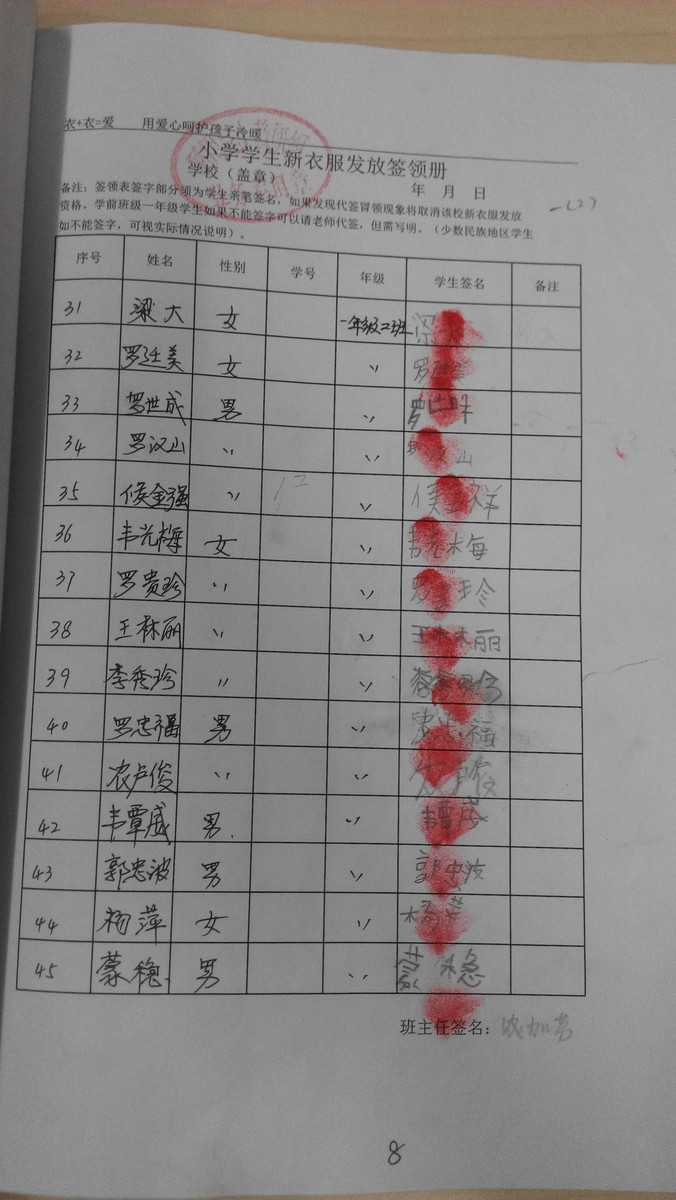 衣+衣=爱 用爱心呵护孩子冷暖
小学学生新衣服发放签领册
学校（盖章） 年 月 日
一(2)
备注：签领表签字部分须为学生亲笔签名，如果发现代签冒领现象将取消该校新衣服发放
资格。学前班级一年级学生如果不能签字可以请老师代签，但需写明。（少数民族地区学生
如不能签字，可视实际情况说明）。
序号 姓名 性别 学号 年级 学生签名 备注
31 梁大 女 一年级二班 梁
32 罗廷美 女 〃 罗
33 罗世成 男 〃 罗世
34 罗汉山 〃 〃 山
35 候金强 〃 〃 候 祥
36 韦光梅 女 〃 韦光梅
37 罗贵珍 〃 〃 罗 珍
38 王林丽 〃 〃 王林丽
39 李秀珍 〃 〃
40 罗忠福 男 〃 忠福
41 农卢俊 〃 〃 农卢俊
42 韦覃威 男 〃 韦覃威
43 郭忠波 男 〃 郭忠波
44 杨萍 女 〃 杨萍
45 蒙稳 男 〃 蒙稳
班主任签名：
8